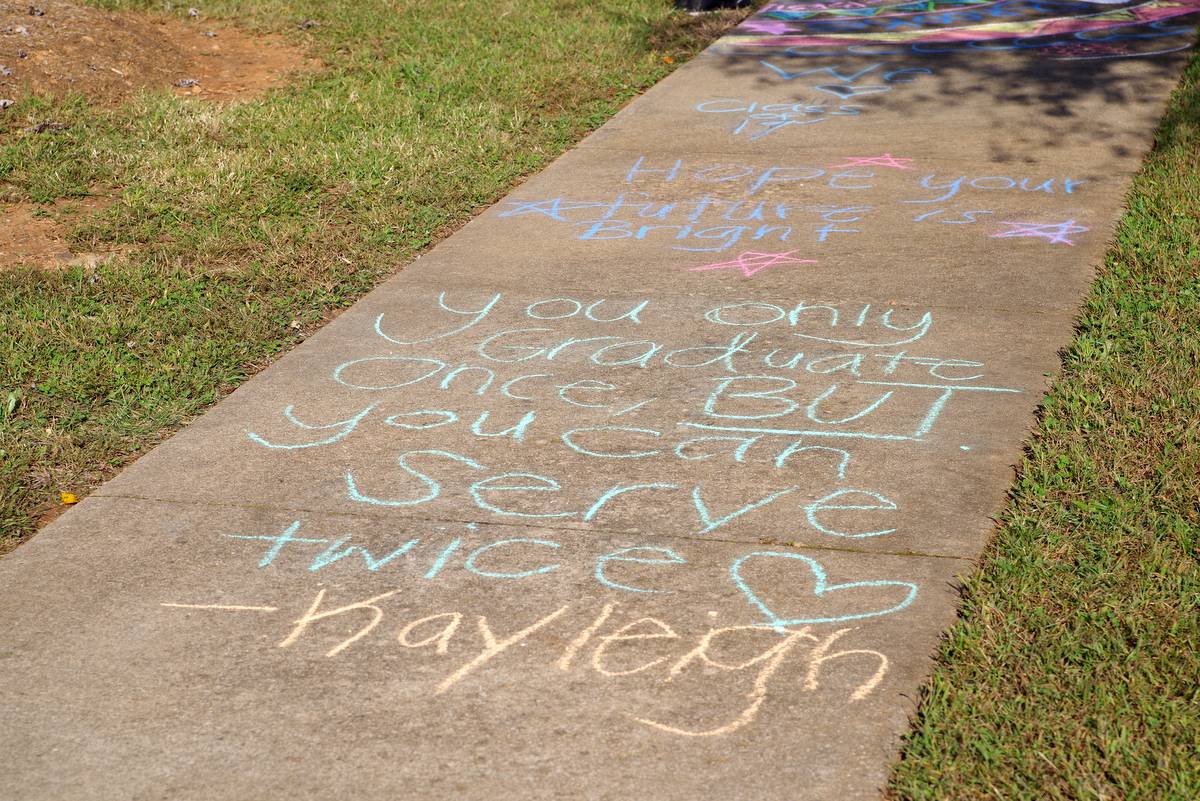 We ♡
Class
17
HOPE your
future is
Bright
you only
Graduate
Once, BUT.
you can
Serve
twice ♡
- Kayleigh